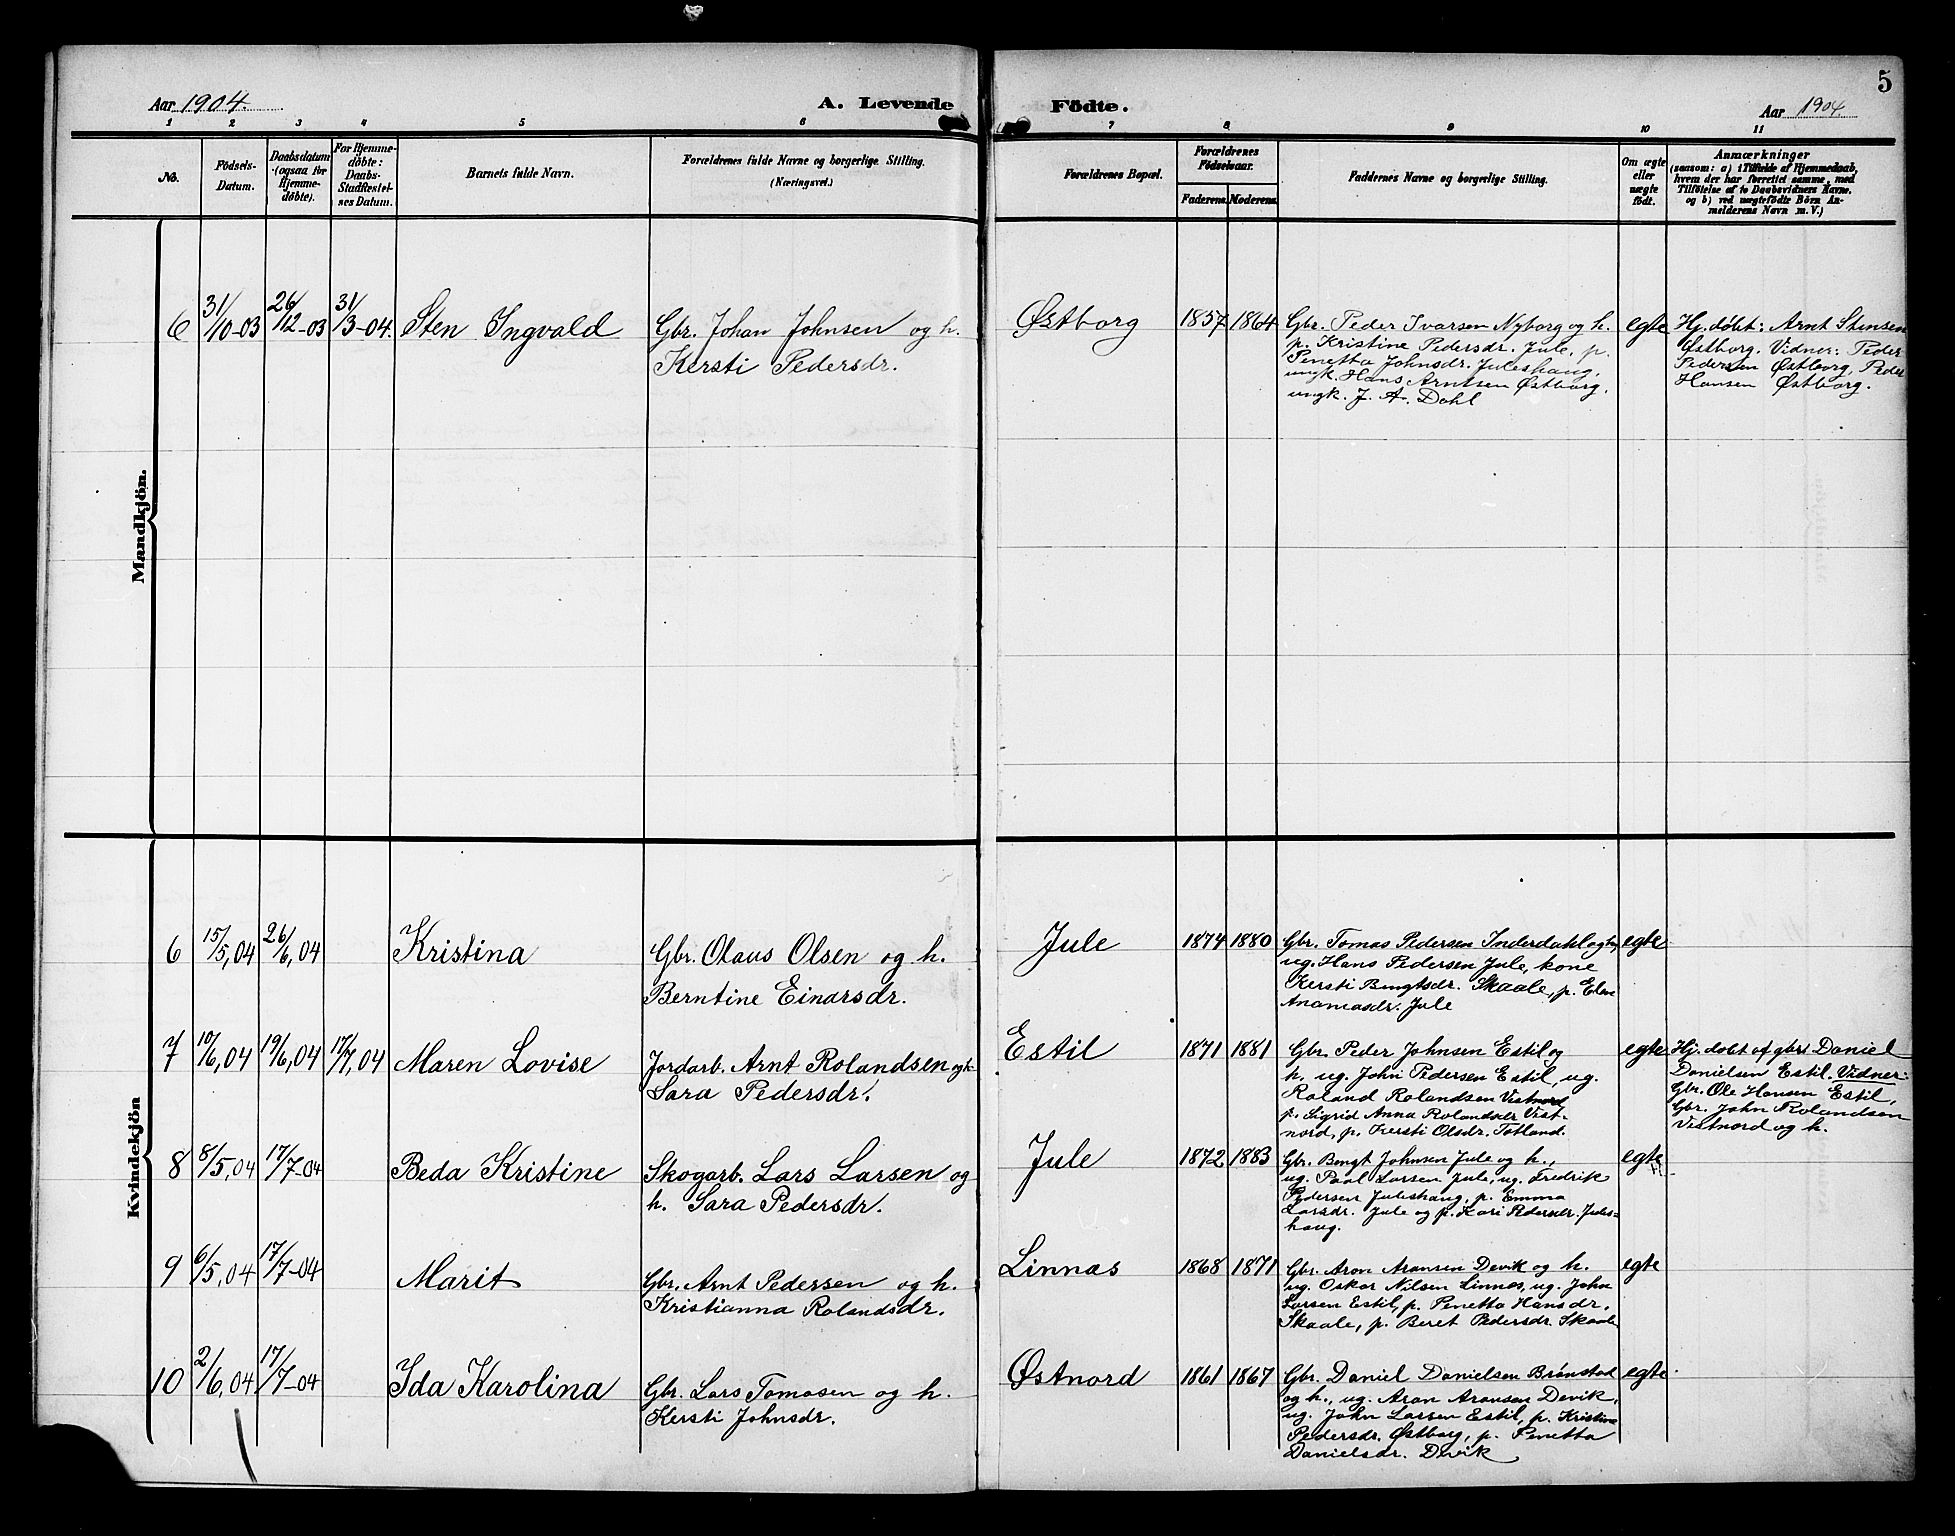 5
Aar 1904.
A. Levende Födte.
Aar 1904.
1 2 3 4 5 6 7 8 9 10 11
No.
Födsels-
Datum.
Daabsdatum
(ogsaa for
Hjemme-
döbte).
For Hjemme-
döbte:
Daabs-
Stadfæstel-
ses Datum.
Barnets fulde Navn.
Forældrenes fulde Navne og borgerlige Stilling.
(Næringsvei.)
Forældrenes Bopæl.
Forældrenes
Födselsaar.
Faderens. Moderens.
Faddernes Navne og borgerlige Stilling.
Om ægte
eller
uægte
födt.
Anmærkninger
(saasom: a) i Tilfælde af Hjemmedaab,
hvem der har forrettet samme, med
Tilföielse af to Daabsvidners Navne,
og b) ved uægtefödte Börn An-
melderens Navn m. V.)
Mandkjön.
6 31/10-03 26/12-03 31/3-04. Sten Ingvald
Gbr. Johan Johnsen og h.
Kersti Pedersdr.
Østborg 1857 1864
Gbr. Peder Ivarsen Nyborg og h.
p. Kristine Pedersdr. Jule, p.
Penetta Johnsdr. Juleshaug,
ungk. Hans Arntsen Østborg,
ungk. J. A. Dahl
egte
Hj. døbt: Arnt Stensen
Østborg. Vidner: Peder
Pedersen Østborg, Peder
Hansen Østborg.
Kvindekjön
6 15/5,04 26/6,04 Kristina
Gbr. Olaus Olsen og h.
Berntine Einarsdr.
Jule 1874 1880
Gbr. Tomas Pedersen Inderdahl og h,
ug. Hans Pedersen Jule, kone
Kersti Bengtsdr. Skaale, p. Elen
Ananiasdr. Jule
egte
7 10/6,04 19/6,04 17/7,04 Maren Lovise
Jordarb. Arnt Rolandsen og h.
Sara Pedersdr.
Estil 1871 1881
Gbr. Peder Johnsen Estil og
h. ug. John Pedersen Estil, ug.
Roland Rolandsen Vestnord
p. Sigrid Anna Rolandsdr Vest-
nord, p. Kersti Olsdr. Totland.
egte
Hj. døbt af gbr. Daniel
Danielsen Estil. Vidner:
Gbr. Ole Hansen Estil,
Gbr. John Rolandsen
Vestnord og h.
8 8/5,04 17/7-04 Beda Kristine
Skogarb. Lars Larsen og
h. Sara Pedersdr.
Jule 1872 1883
Gbr. Bengt Johnsen Jule og h.,
ug. Paal Larsen Jule, ug. Fredrik
Pedersen Juleshaug, p. Emma
Larsdr. Jule og p. Kari Pedersdr. Jules-
haug.
egte
9 6/5,04 17/7-04 Marit
Gbr. Arnt Pedersen og h.
Kristianna Rolandsdr.
Linnas 1868 1871
Gbr. Aron Aronsen Devik og h.
ug. Oskar Nilsen Linnas, ug. John
Larsen Estil, p. Penetta Hansdr.
Skaale, p. Beret Pedersdr. Skaale
egte
10 2/6,04 17/7-04 Ida Karolina
Gbr. Lars Tomasen og h.
Kersti Johnsdr.
Østnord 1861 1867
Gbr. Daniel Danielsen Brønstad
og h., ug. Aron Aronsen Devik,
ug. John Larsen Estil, p. Kristine
Pedersdr. Østborg, p. Penetta
Danielsdr. Devik
egte